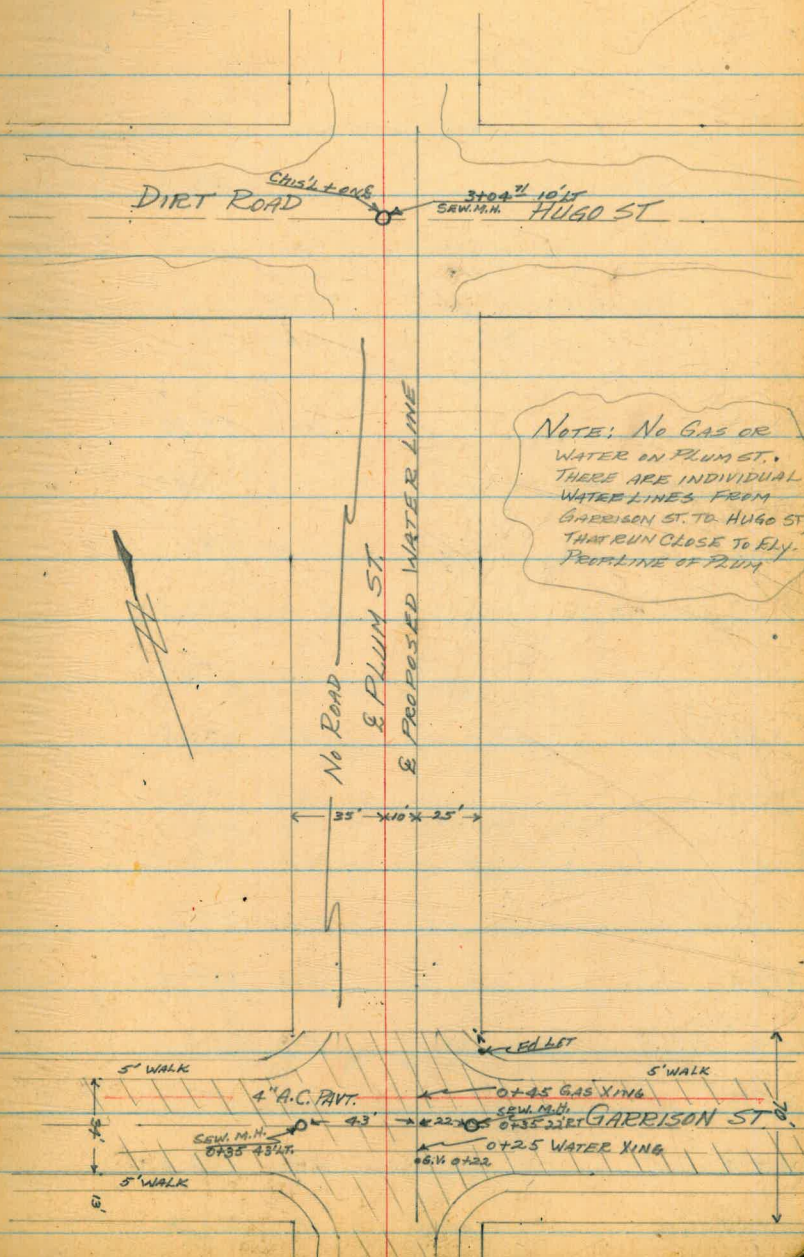 CHIS'L + ON ℄
DIRT ROAD
3+04⁷¹ 10' LT
SEW. M.H.
HUGO ST
NOTE: NO GAS OR
WATER ON PLUM ST.
THERE ARE INDIVIDUAL
WATER LINES FROM
GARRISON ST. TO HUGO ST
THAT RUN CLOSE TO ELY.
PROP. LINE OF PLUM
NO ROAD
℄ PLUM ST.
℄ PROPOSED WATER LINE
N
35' 10' 25'
FD L&T
5' WALK
5' WALK
4" A.C. PAVT.
0+45 GAS XING
SEW. M.H.
0+35 22' RT
GARRISON ST
43'
22
SEW. M.H.
0+35 43' LT.
0+25 WATER XING
G.V. 0+22
5' WALK
13'
70'